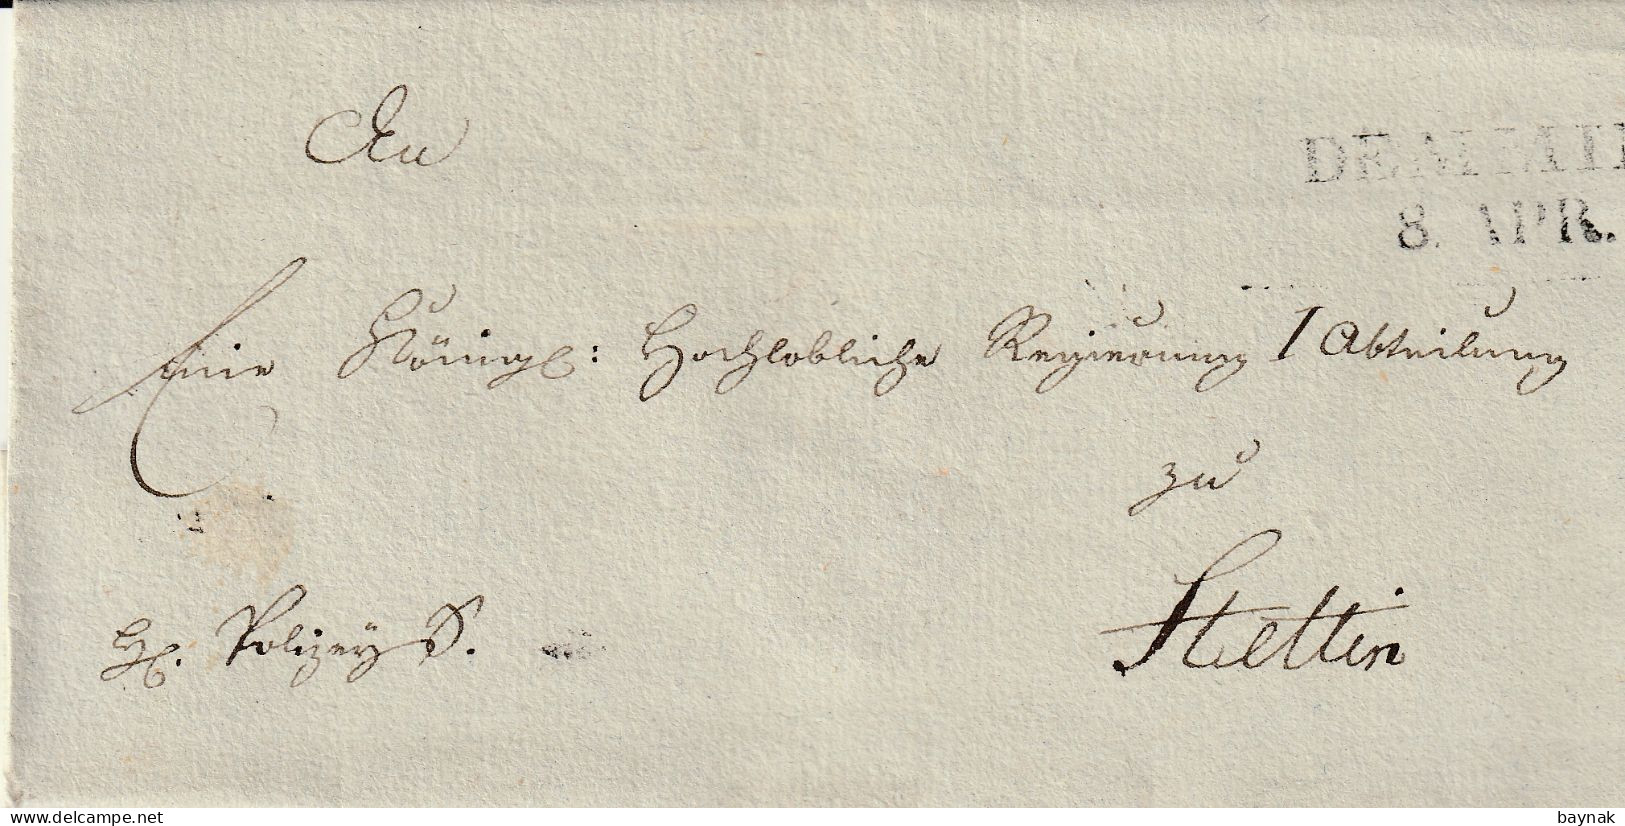 An
DEMMIN
8. APR.
Eine Königl: Hochlobliche Regierung I Abteilung
zu
Stettin
Polizey S.
delcampe.net
baynak